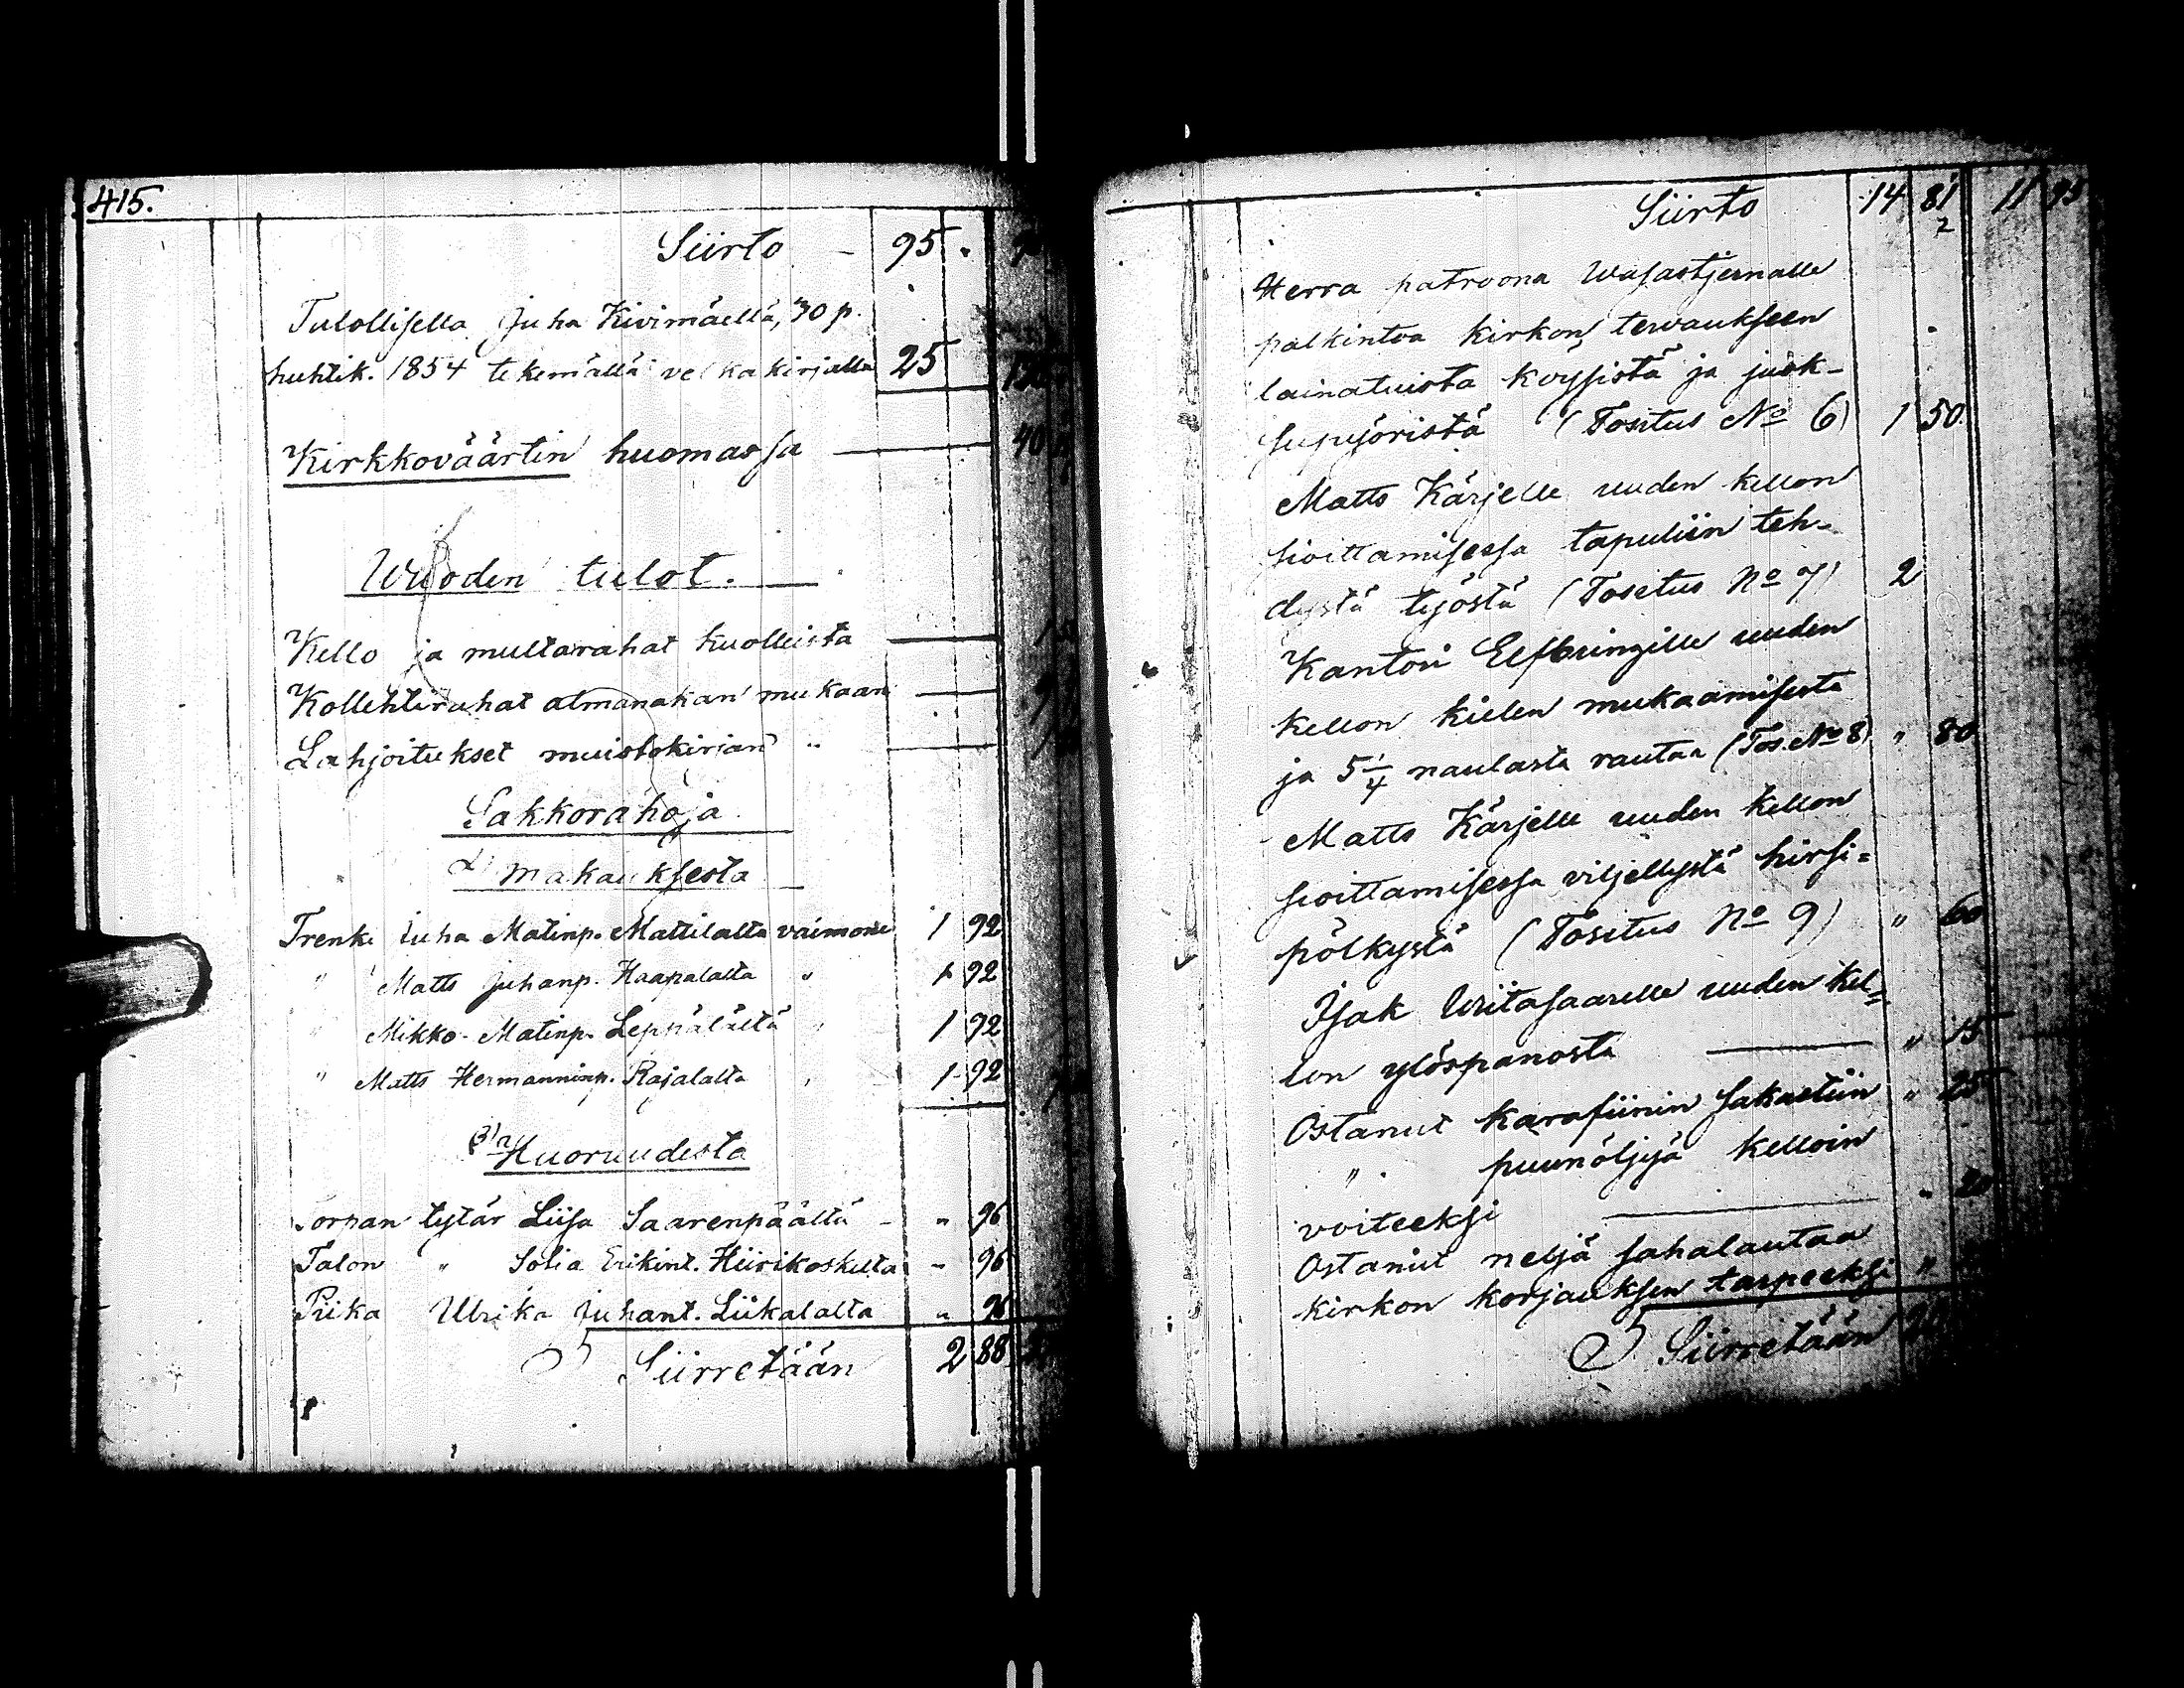 415.
Siirto - 95 "
Tulollisella Juha Kivimäellä, 30 p.
huhtik. 1854 tekemällä velkakirjalla 25
Kirkkoväärtin huomassa
Wuoden tulot.
Kello ja multarahat kuolleista
Kollehtirahat almanakan mukaan
Lahjoitukset muistokirjan "
Sakkorahoja
α) makauksesta
Trenki Juha Matinp. Mattilalta vaimonsa 1 92
" Matts Juhanp. Haapalalta " 1 92
" Mikko Matinp. Leppälältä " 1 92
" Matts Hermanninp. Rajalalta " 1 92
β) Huoruudesta
Torpan tytär Liisa Saarenpäältä - " 96
Talon " Sofia Erikint. Hiirikoskelta " 96
Piika Ulrika Juhant. Liikalalta " 96
Siirretään 2 88
Siirto 14 81 11 95
Herra patroona Wasastjernalle
palkintoa kirkon tervaukseen
lainatuista köysistä ja juok-
supyöristä (Tositus No 6) 1 50
Matts Kärjelle uuden kellon
sioittamisessa tapuliin teh-
dystä työstä (Tositus No 7) 2
Kantori Elfvingille uuden
kellon kielen mukaamisesta
ja 5 1/4 naulasta rautaa (Tos. No 8) " 80
Matts Kärjelle uuden kellon
sioittamisessa viljellystä hirsi=
pölkystä (Tositus No 9) " 60
Isak Uiitasaarelle uuden kel=
lon ylöspanosta " 15
Ostanut karafiinin sakastiin " 25
" puunöljyä kelloin
voiteeksi " 20
Ostanut neljä sahalautaa
kirkon korjauksen tarpeeksi "
Siirretään